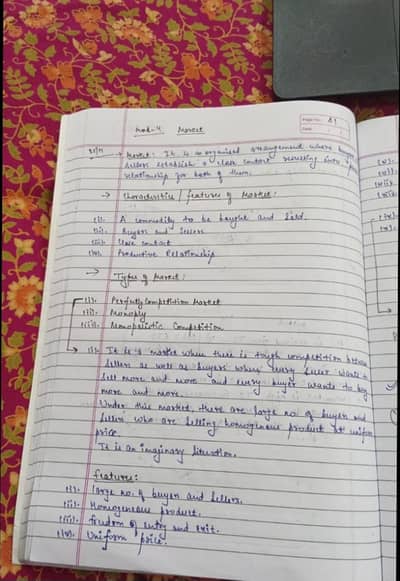 Page No. 81
Date
Mod-4 Market
Market: It is an organised arrangement where buyers
sellers establish a close contact resulting into a
relationship for both of them.
→ Characteristics / features of Market:
(i). A commodity to be bought and Sold.
(ii). Buyers and Sellers
(iii). Close contact
(iv). Productive Relationship
→ Types of Market:
(i). Perfectly Competition Market
(ii). Monopoly
(iii). Monopolistic Competition
(i). It is a market when there is tough competition between
sellers as well as buyers when every seller wants to
sell more and more and every buyer wants to buy
more and more.
Under this market, there are large no. of buyers and
sellers who are selling homogenous product at uniform
price.
It is an imaginary situation.
features:
(i). large no. of buyers and sellers.
(ii). Homogeneous product.
(iii). freedom of entry and exit.
(iv). Uniform price.